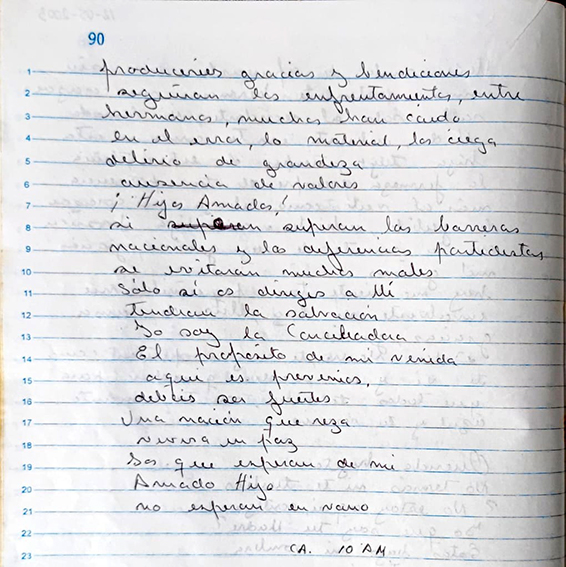 90
1 produceries gracias y bendiciones
2 seguiran los enfrentamientos, entre
3 hermanos, muchos han caido
4 en el error, lo material, los ciega
5 delirio de grandeza
6 ausencia de valores
7 ¡Hijos Amados!
8 si superan superan las barreras
9 nacionales y las diferencias partidistas
10 se evitaran muchos males
11 Sólo si os dirigis a Mí
12 tendran la salvación
13 Yo soy la Conciliadora
14 El propósito de mi venida
15 aqui es preveniros,
16 debéis ser fuertes
17 Una nación que reza
18 vivira en paz
19 Los que esperan de mi
20 Amado Hijo
21 no esperan en vano
22
23 CA. 10 AM